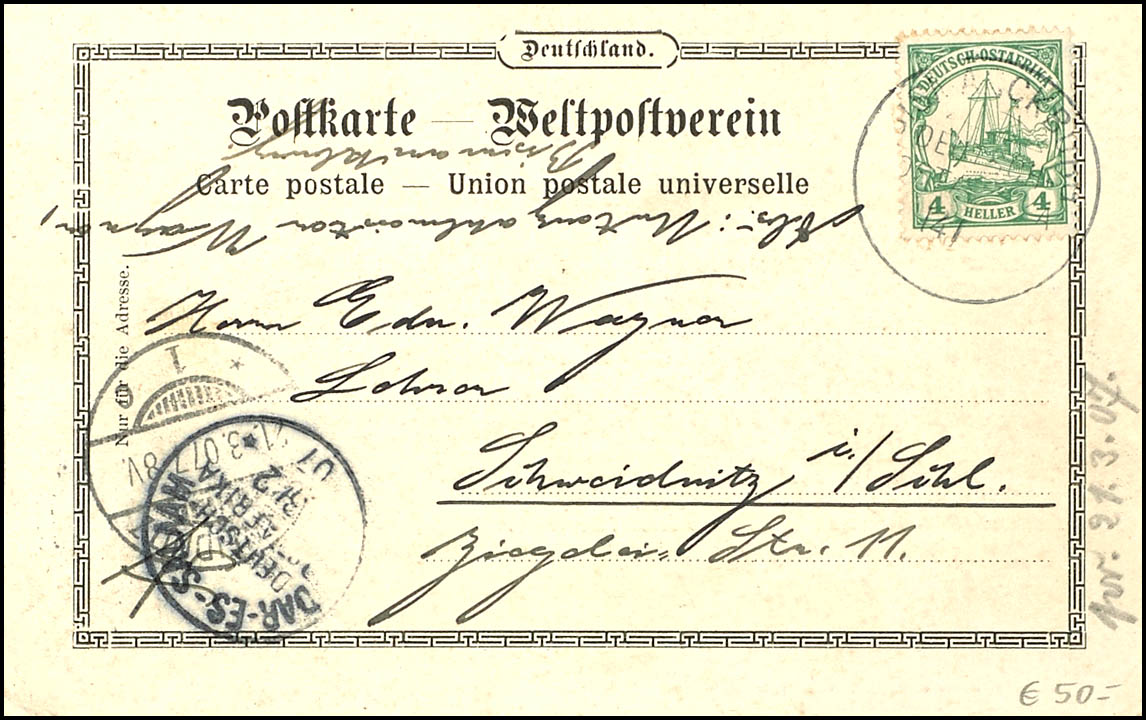 Deutschland.
Postkarte — Weltpostverein
Carte postale — Union postale universelle
DEUTSCH-OSTAFRIKA
4 HELLER 4
Abs.: Unterzahlmeister Wagner,
Nur für die Adresse.
Herrn Edu. Wagner
Lehrer
Schweidnitz i/Schl.
Ziegelei-Str. 11.
DAR-ES-SALAAM
DEUTSCH-
AFRIKA
07
1
3.07.
8V.
pr. 21.3.07.
€ 50-